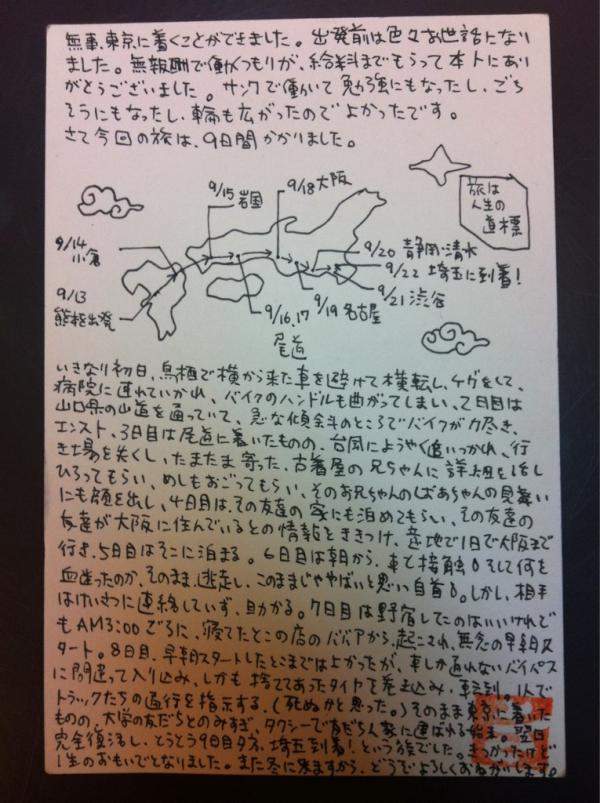 無事、東京に着くことができました。出発前は色々お世話になり
ました。無報酬で働くつもりが、給料までもらって本トにあり
がとうございました。サンクで働いて勉強にもなったし、ごち
そうにもなったし、輪も広がったのでよかったです。
さて今回の旅は、9日間かかりました。
旅は
人生の
道標
9/18大阪
9/15岩国
9/14
小倉
9/20 静岡・清水
9/22 埼玉に到着!
9/21渋谷
9/19名古屋
9/13
熊本出発
9/16.17
尾道
いきなり初日、鳥栖で横から来た車を避けて横転し、ケガをして、
病院に連れていかれ、バイクのハンドルも曲がってしまい、2日目は
山口県の山道を通っていて、急な傾斜のところでバイクが力尽き、
エンスト、3日目は尾道に着いたものの、台風にようやく追いつかれ、行
き場を失くし、たまたま寄った、古着屋の兄ちゃんに
ひろってもらい、めしもおごってもらい、そのお兄ちゃんのばあちゃんの見舞い
にも顔を出し、4日目は、その友達の家にも泊めてもらい、その友達の
友達が大阪に住んでいるとの情報をききつけ、意地で1日で大阪まで
行き、5日目はそこに泊まる。6日目は朝から、車と接触!そして何を
血迷ったのか、そのまま、逃走し、このままじゃやばいと思い自首!しかし、相手
はけいさつに連絡していず、助かる。7日目は野宿してたのはいいけれど
もAM3:00ごろに、寝てたとこの店のババアから起こされ、無念の早朝ス
タート。8日目、早朝スタートしたとこまではよかったが、車しか通れないバイパス
に間違って入り込み、しかも捨ててあったタイヤを巻き込み、転倒。1人で
トラックたちの通行を指示する。(死ぬかと思った。)そのまま東京に着いた
ものの、大学の友だちとのみすぎ、タクシーで友だちん家に運ばれる始末。翌日
完全復活し、とうとう9日目夕方、埼玉到着!という旅でした。きつかったけど
1生のおもいでとなりました。また冬に来ますから、どうぞよろしくおねがいします。